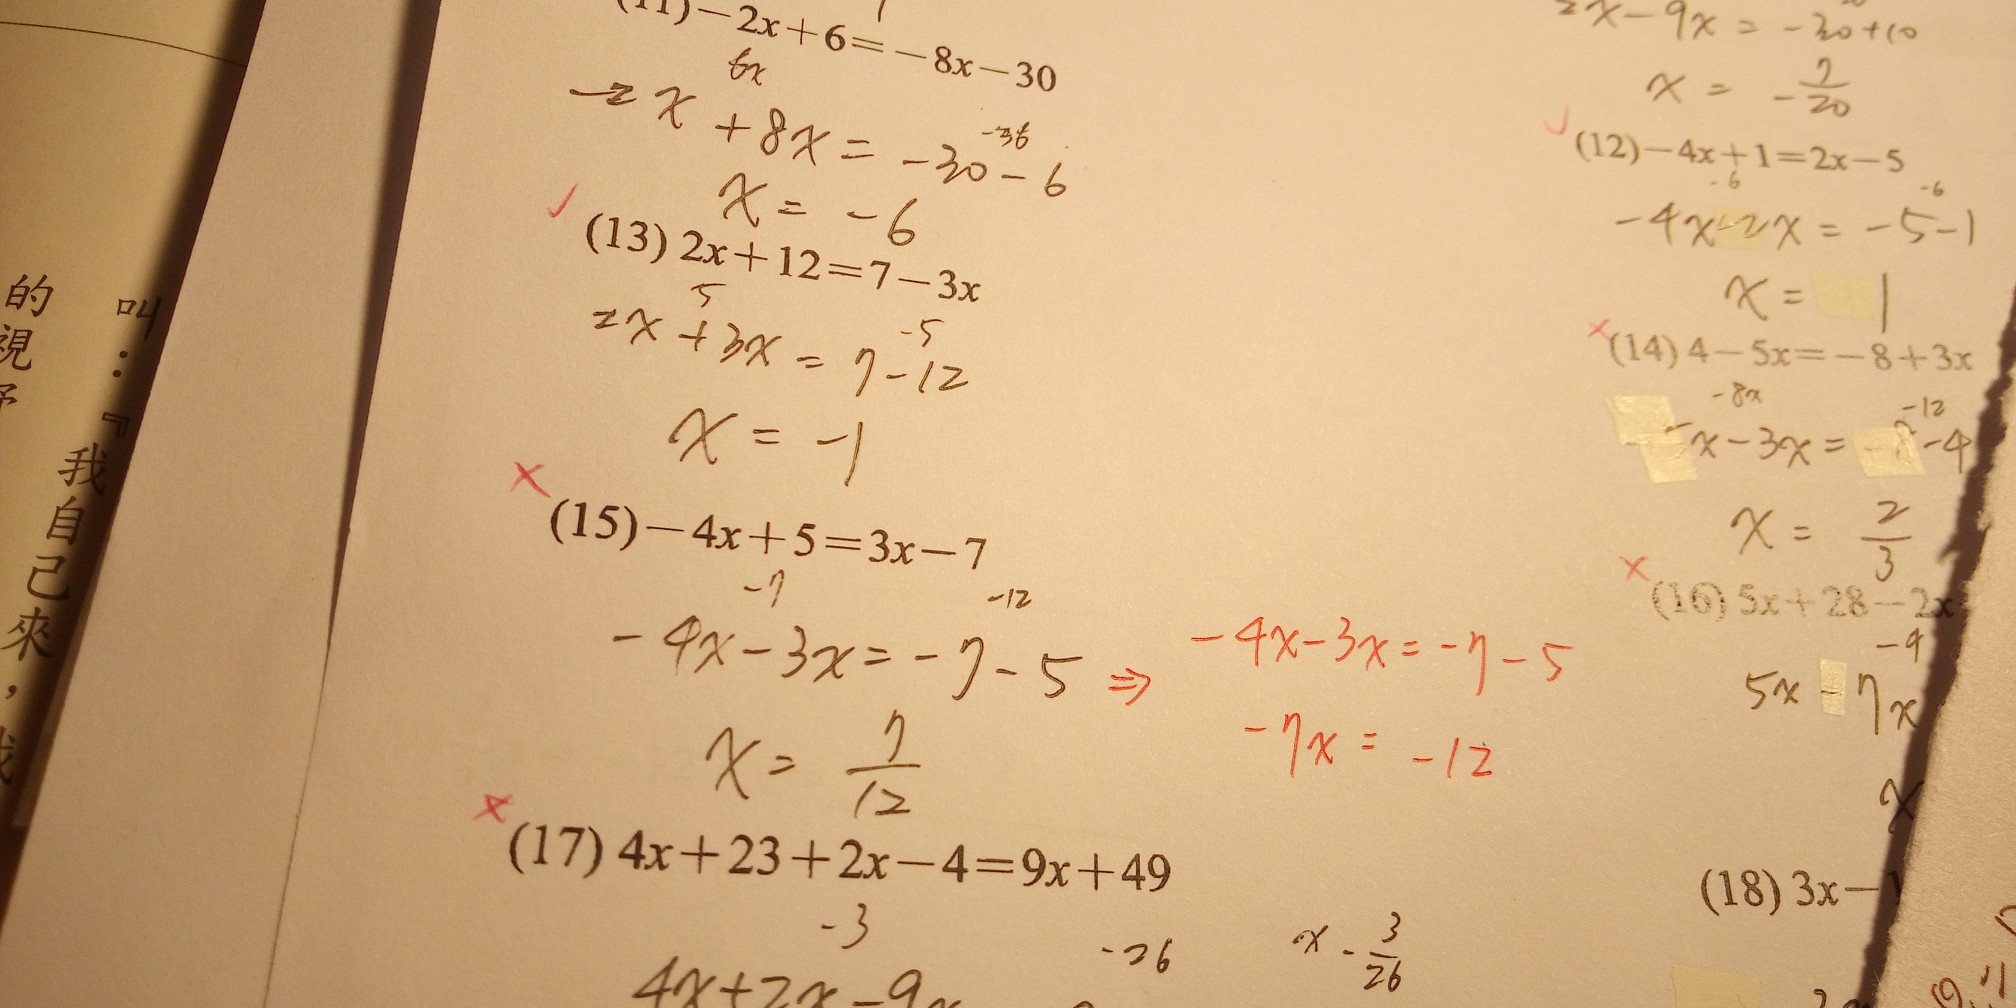 的視
叫：『我自己來，我
(11)－2x＋6＝－8x－30
6x
-36
-2x +8x = -30 - 6
x = -6
✓
(13) 2x＋12＝7－3x
5
-5
2x + 3x = 7 - 12
x = -1
×
(15)－4x＋5＝3x－7
-7
-12
-4x - 3x = -7 - 5 ⇒ -4x-3x = -7-5
x = 7/12
-7x = -12
×
(17) 4x＋23＋2x－4＝9x＋49
-3
-26
x - 3/26
4x+2x-9x
2x-9x = -30+10
x = -7/20
✓
(12)－4x＋1＝2x－5
-6
-6
-4x-2x = -5-1
x = 1
×
(14) 4－5x＝－8＋3x
-8x
-12
x-3x = -4
x = 2/3
×
(16) 5x＋28－2x
-9
5x - 7x
x
(18) 3x－1